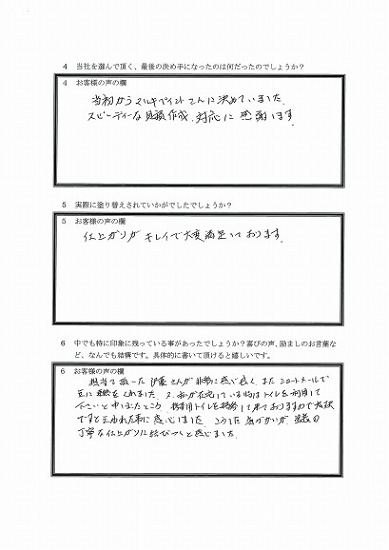 4 当社を選んで頂く、最後の決め手になったのは何だったのでしょうか？
4 お客様の声の欄
当初からマルキペイントさんに決めていました。
スピーディーな見積作成、対応に感謝します。
5 実際に塗り替えされていかがでしたでしょうか？
5 お客様の声の欄
仕上がりがキレイで大変満足しております。
6 中でも特に印象に残っている事があったでしょうか？喜びの声、励ましのお言葉な
ど、なんでも結構です。具体的に書いて頂けると嬉しいです。
6 お客様の声の欄
担当て頂いた伊藤さんが非常に感じ良く、またショートメールで
互に連絡をとれました。又、私が在宅している時はトイレを利用して
下さいと申したところ、携帯用トイレを持参して来ておりますので大丈夫
ですと言われた事に感心しました。こうした気づかいが、塗装の
丁寧な仕上がりに結びつくと感じました。